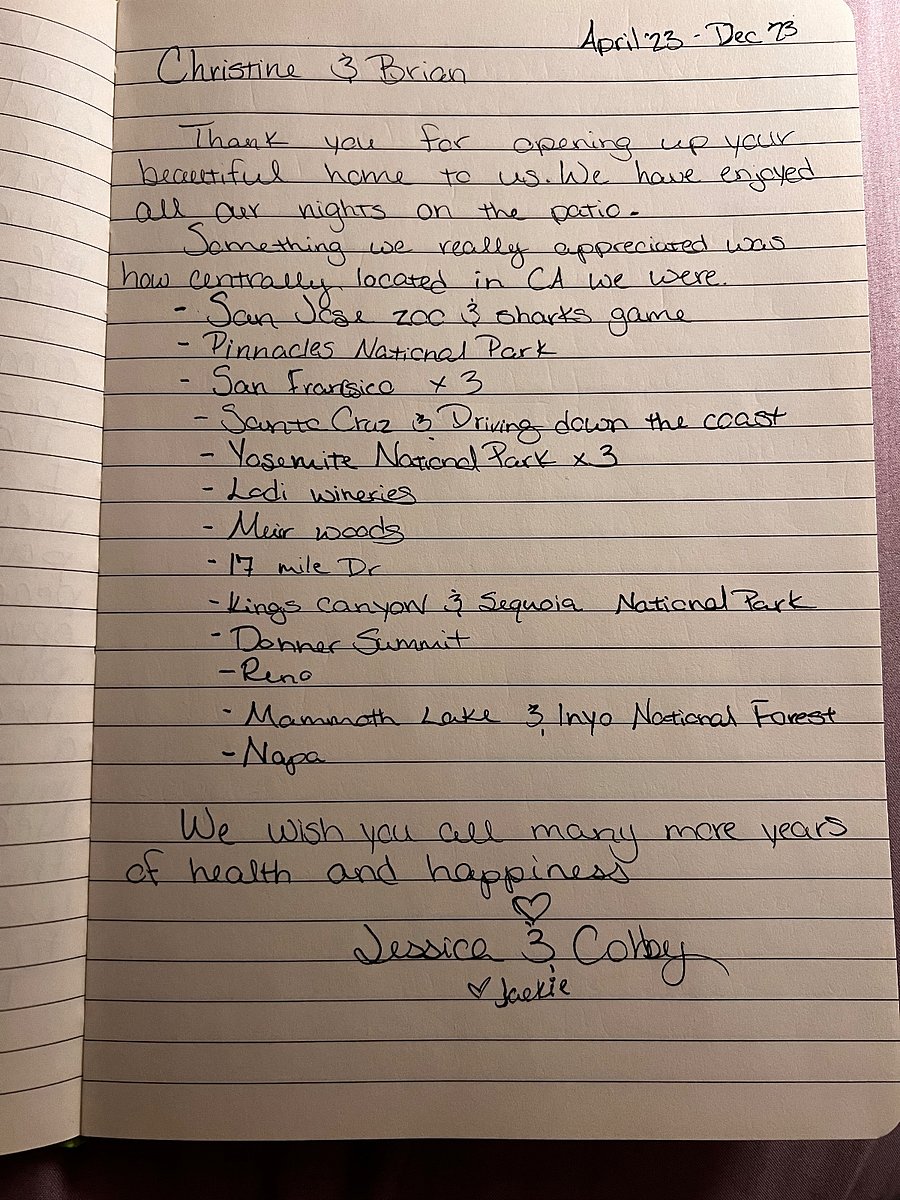 April '23 - Dec '23
Christine & Brian
Thank you for opening up your
beautiful home to us. We have enjoyed
all our nights on the patio.
Something we really appreciated was
how centrally located in CA we were.
- San Jose zoo & sharks game
- Pinnacles National Park
- San Francsico x 3
- Santa Cruz & Driving down the coast
- Yosemite National Park x 3
- Lodi wineries
- Meir woods
- 17 mile Dr
- Kings Canyon & Sequoia National Park
- Donner Summit
- Reno
- Mammoth Lake & Inyo National Forest
- Napa
We wish you all many more years
of health and happiness
♡
Jessica & Colby
♡ Jackie